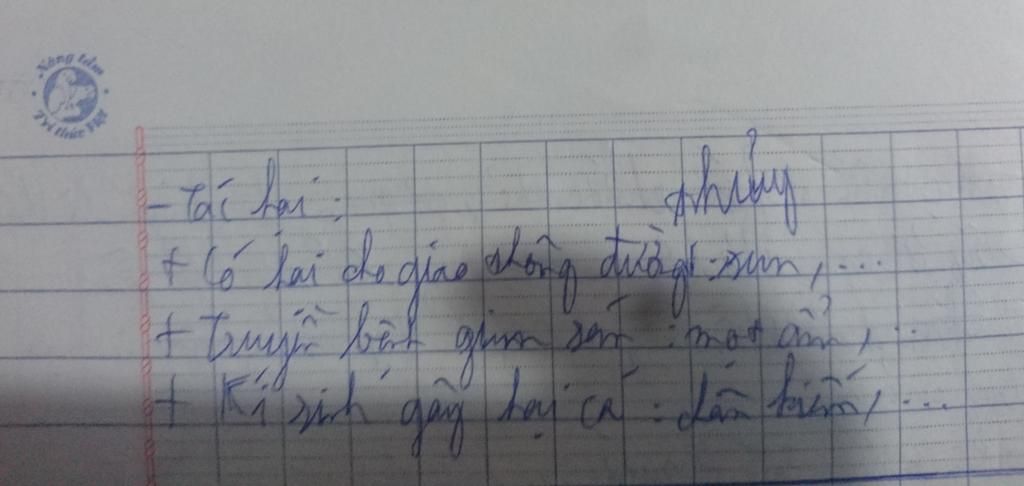 Nâng tầm
Trí thức Việt
- Tác hại :
thủy
+ Có hại cho giao thông đường : sun, ...
+ Truyền bệnh giun sán : mọt ẩm, ...
+ Kí sinh gây hại cá : chân kiếm, ...